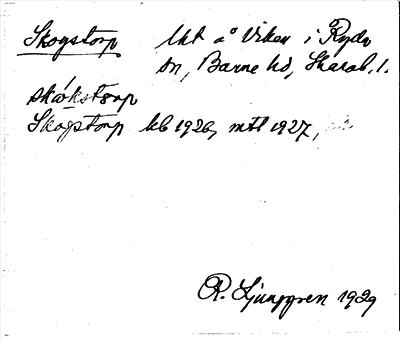 Skogstorp lht å Viken i Ryda
sn, Barne hd, Skarab. l.
skákstorp
Skogstorp kb 1926, mtl 1927,
R. Ljunggren 1929